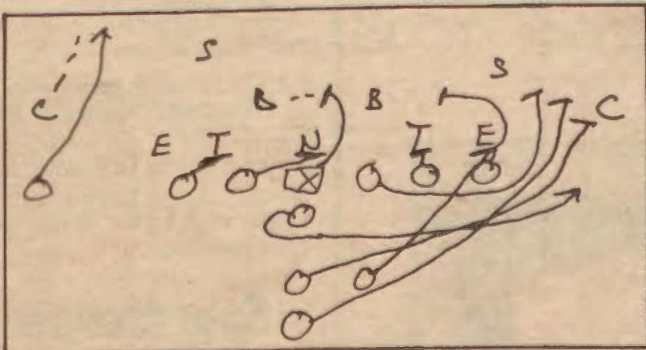 S
S
C B B C
E T N T E
X